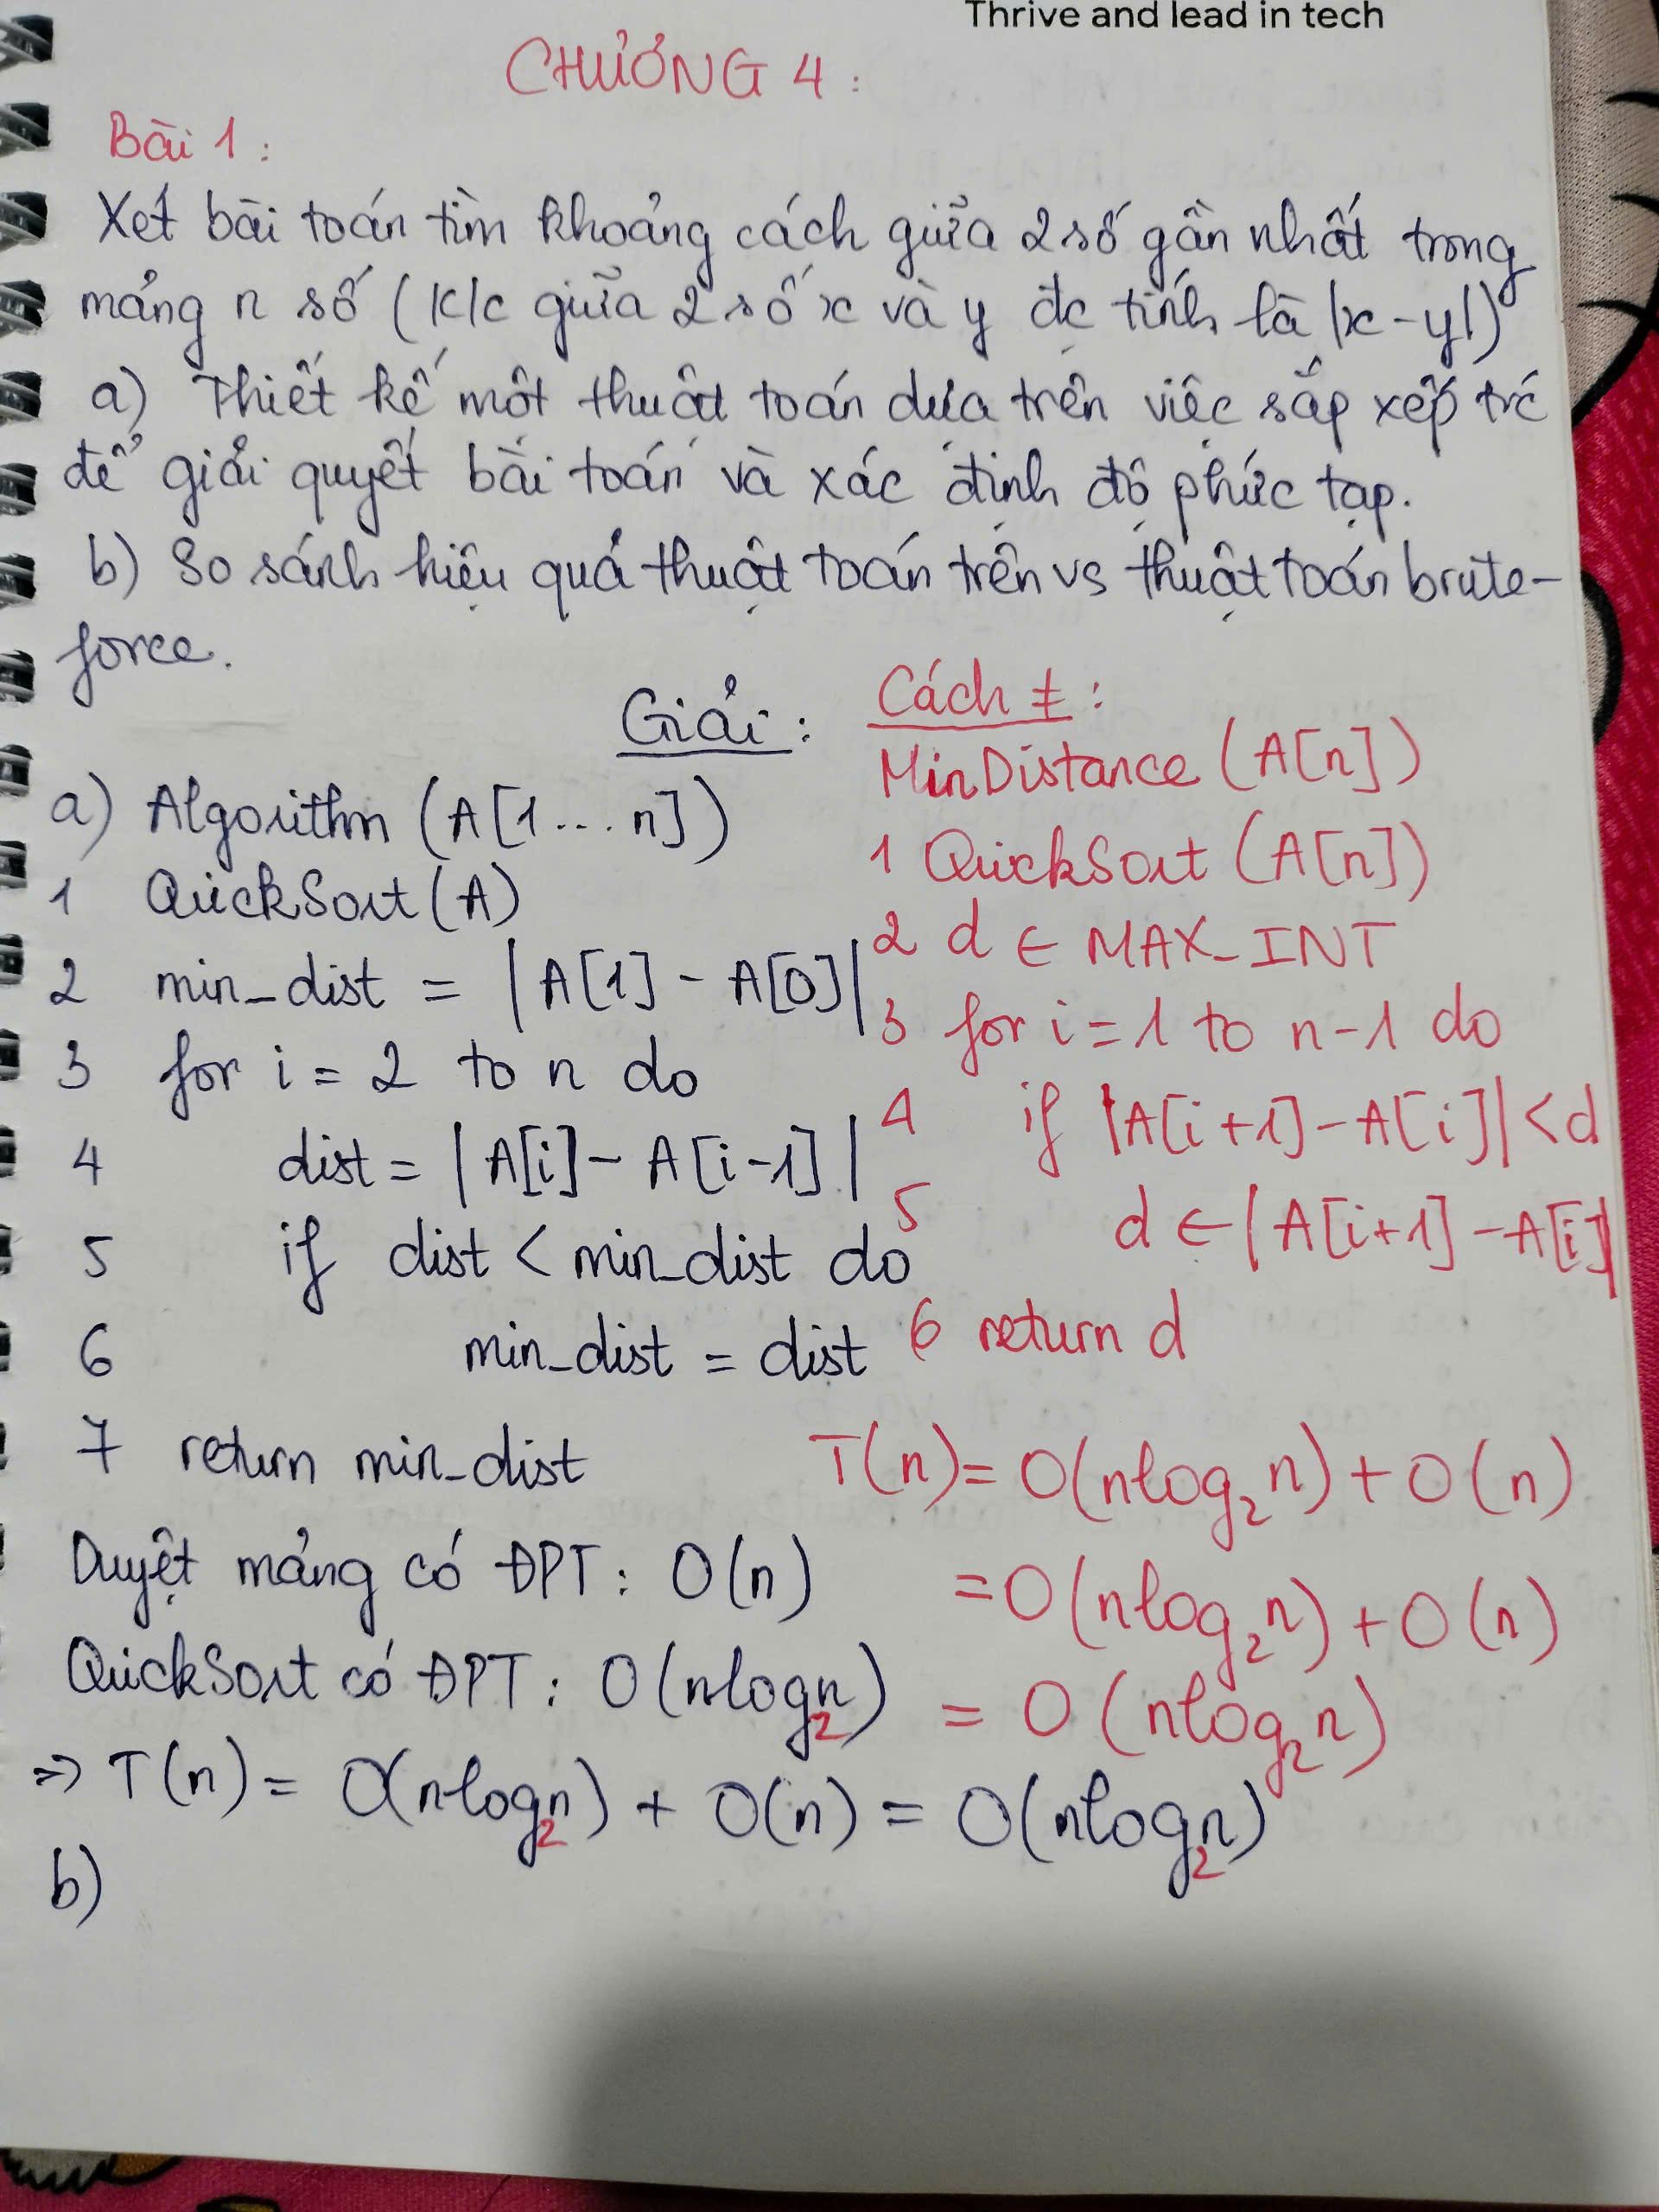 Thrive and lead in tech
CHƯƠNG 4:
Bài 1:
Xét bài toán tìm khoảng cách giữa 2 số gần nhất trong
mảng n số (K/c giữa 2 số x và y đc tính là |x-y|)
a) Thiết kế một thuật toán dựa trên việc sắp xếp trc
để giải quyết bài toán và xác định độ phức tạp.
b) So sánh hiệu quả thuật toán trên vs thuật toán brute-
force.
Giải:
a) Algorithm (A[1...n])
1 QuickSort(A)
2 min_dist = |A[1] - A[0]|
3 for i = 2 to n do
4 dist = |A[i] - A[i-1]|
5 if dist < min_dist do
6 min_dist = dist
7 return min_dist
Duyệt mảng có ĐPT: O(n)
QuickSort có ĐPT: O(nlog₂n)
=> T(n) = O(nlog₂n) + O(n) = O(nlog₂n)
b)
Cách ≠:
MinDistance (A[n])
1 QuickSort (A[n])
2 d ← MAX_INT
3 for i = 1 to n-1 do
4 if |A[i+1] - A[i]| < d
5 d ← |A[i+1] - A[i]|
6 return d
T(n) = O(nlog₂n) + O(n)
= O(nlog₂n) + O(n)
= O(nlog₂n)